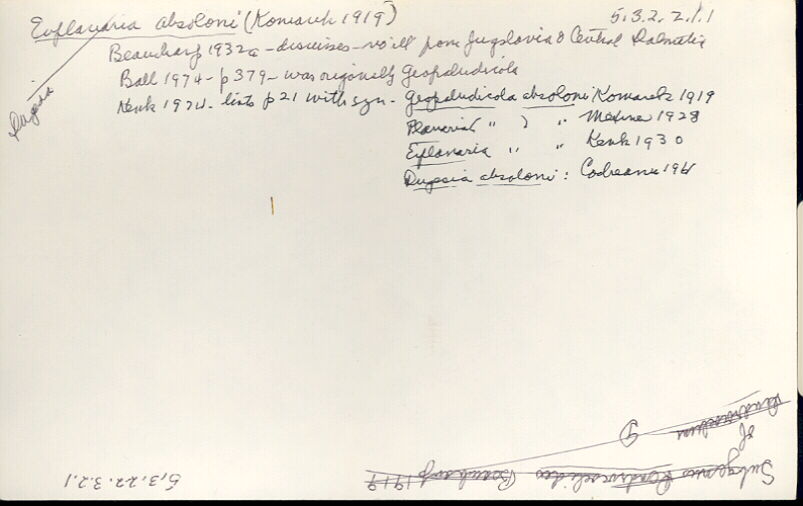 Euplanaria absoloni (Komarek 1919) 5.3.2.2.1.1
Dugesia
Beauchamp 1932a - discusses - no ill from Jugslavia & Central Dalmatia
Ball 1974 - p 379 - was originally Geopaludicola
Kenk 1974 - lists p 21 with syn - Geopaludicola absoloni Komarek 1919
Planaria ( " ) " Meixner 1928
Euplanaria " " Kenk 1930
Dugesia absoloni : Codreanu
5.3.2.2.3.2.1
Subgenus Beauchamp 1919
of